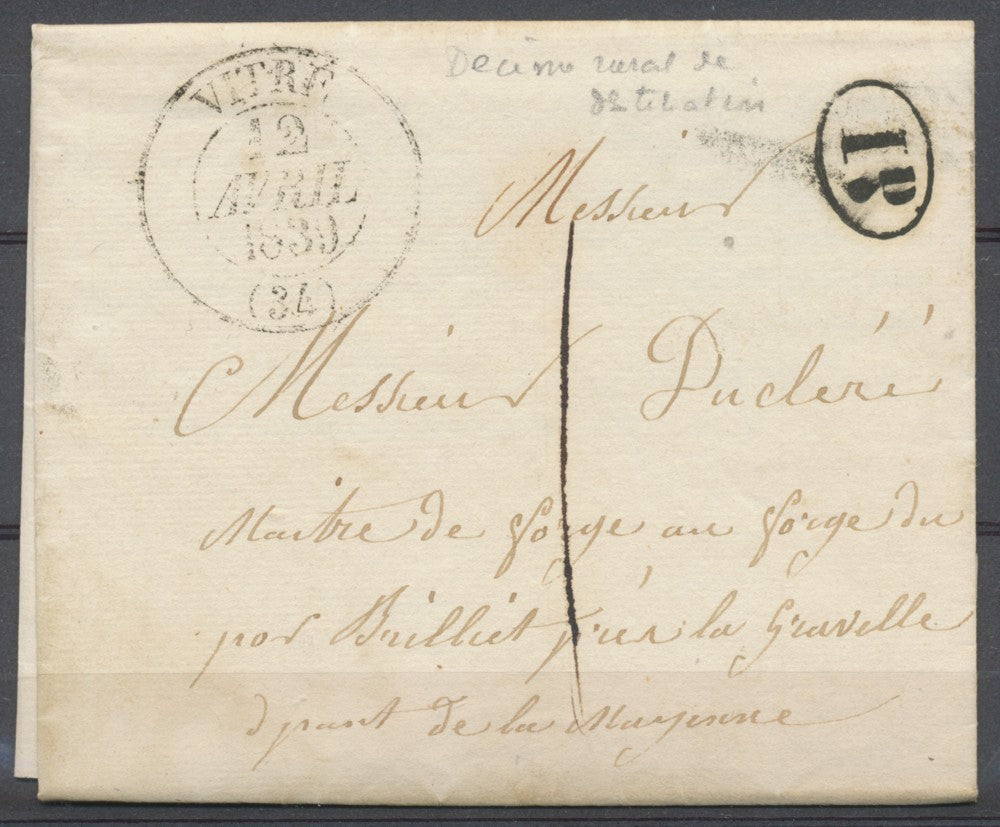 VITRÉ
12
AVRIL
1839
(34)
Decime rural de
1D
Messieur
Messieur Ducléré
Maitre de forge au forge du
por Brilliet près la Gravelle
dpant de la Mayenne